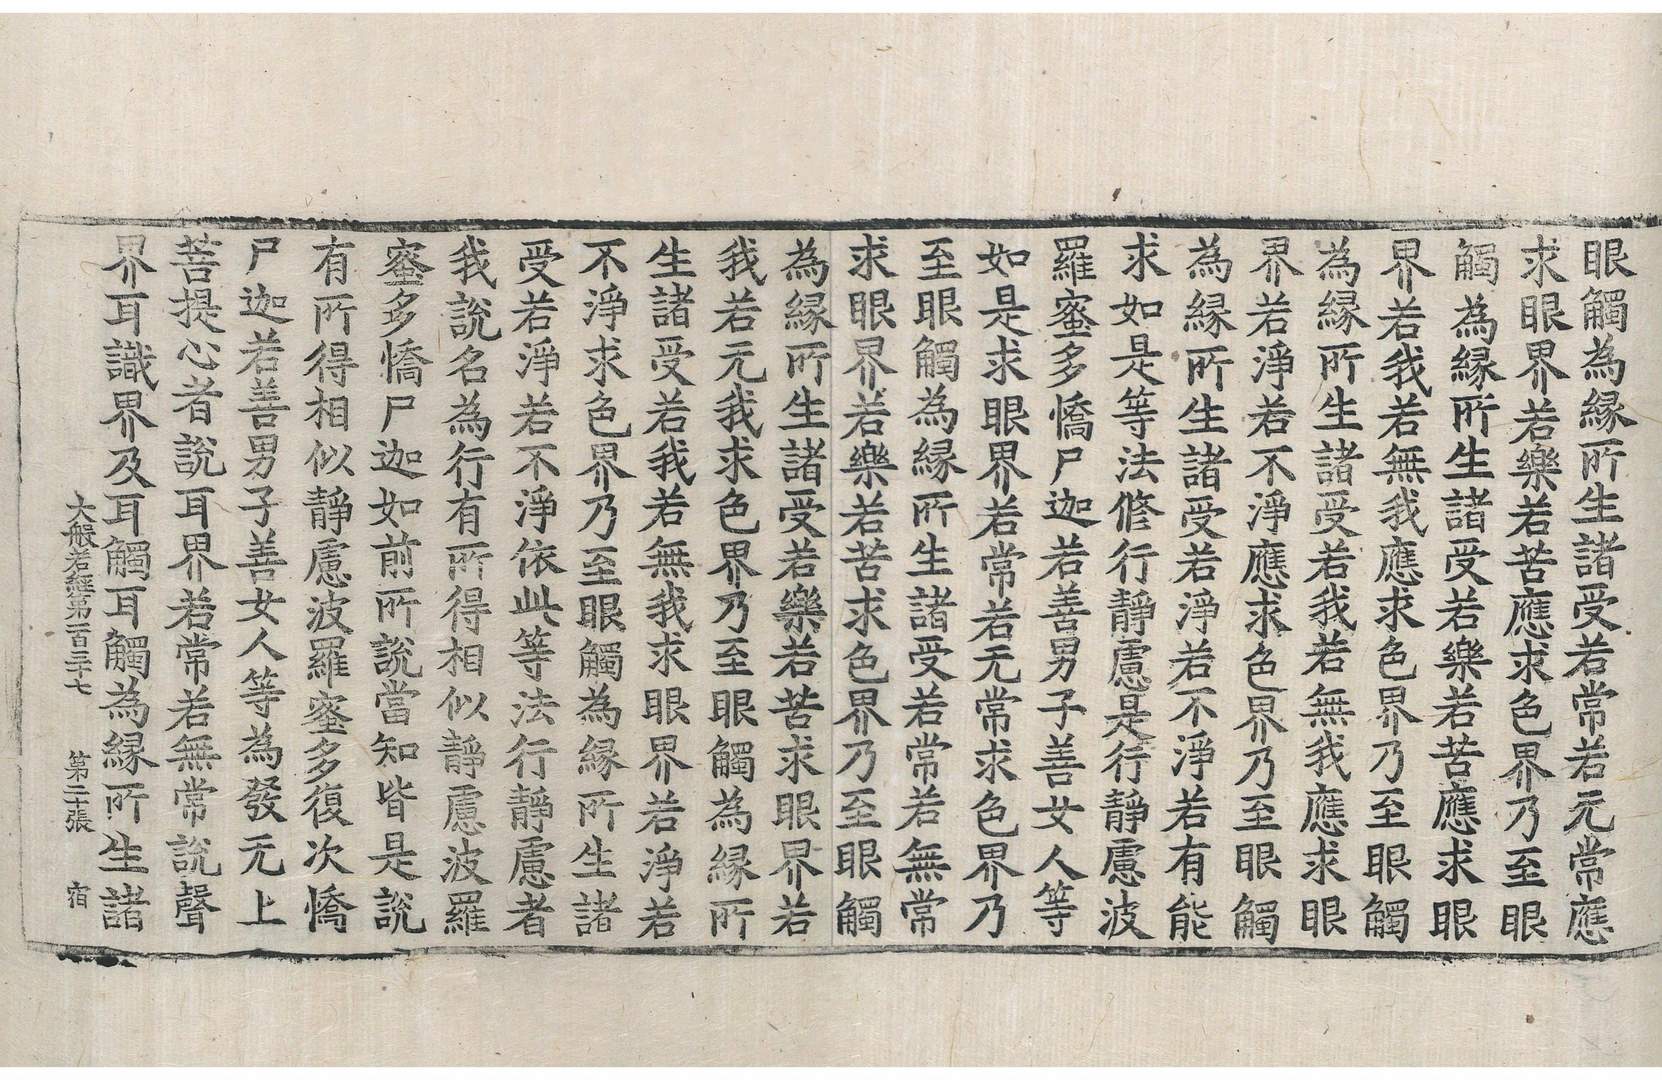 眼觸為緣所生諸受若常若无常應
求眼界若樂若苦應求色界乃至眼
觸為緣所生諸受若樂若苦應求眼
界若我若無我應求色界乃至眼觸
為緣所生諸受若我若無我應求眼
界若淨若不淨應求色界乃至眼觸
為緣所生諸受若淨若不淨若有能
求如是等法修行靜慮是行靜慮波
羅蜜多憍尸迦若善男子善女人等
如是求眼界若常若无常求色界乃
至眼觸為緣所生諸受若常若無常
求眼界若樂若苦求色界乃至眼觸
為緣所生諸受若樂若苦求眼界若
我若无我求色界乃至眼觸為緣所
生諸受若我若無我求眼界若淨若
不淨求色界乃至眼觸為緣所生諸
受若淨若不淨依此等法行靜慮者
我說名為行有所得相似靜慮波羅
蜜多憍尸迦如前所說當知皆是說
有所得相似靜慮波羅蜜多復次憍
尸迦若善男子善女人等為發无上
菩提心者說耳界若常若無常說聲
界耳識界及耳觸耳觸為緣所生諸
大般若經第一百三十七 第二十張 宿